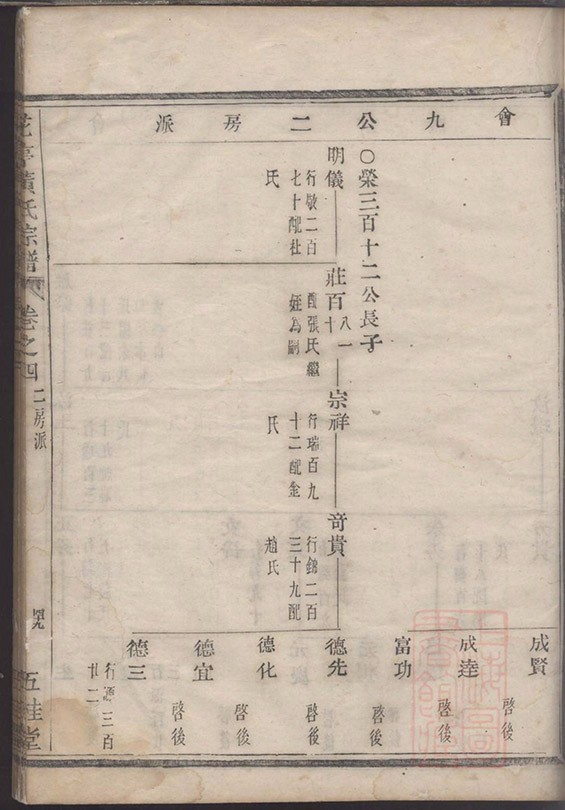 會九公二房派
○榮三百十二公長子
明儀
行敬二百
七十配杜
氏
莊百八十一
配張氏繼
姪為嗣
宗祥
行瑞百九
十二配金
氏
奇貴
行錦二百
三十九配
趙氏
成賢
成達
啓後
富功
啓後
德先
啓後
德化
啓後
德宜
啓後
德三
行源三百
廿二
黃氏宗譜
卷之四
二房派
五桂堂